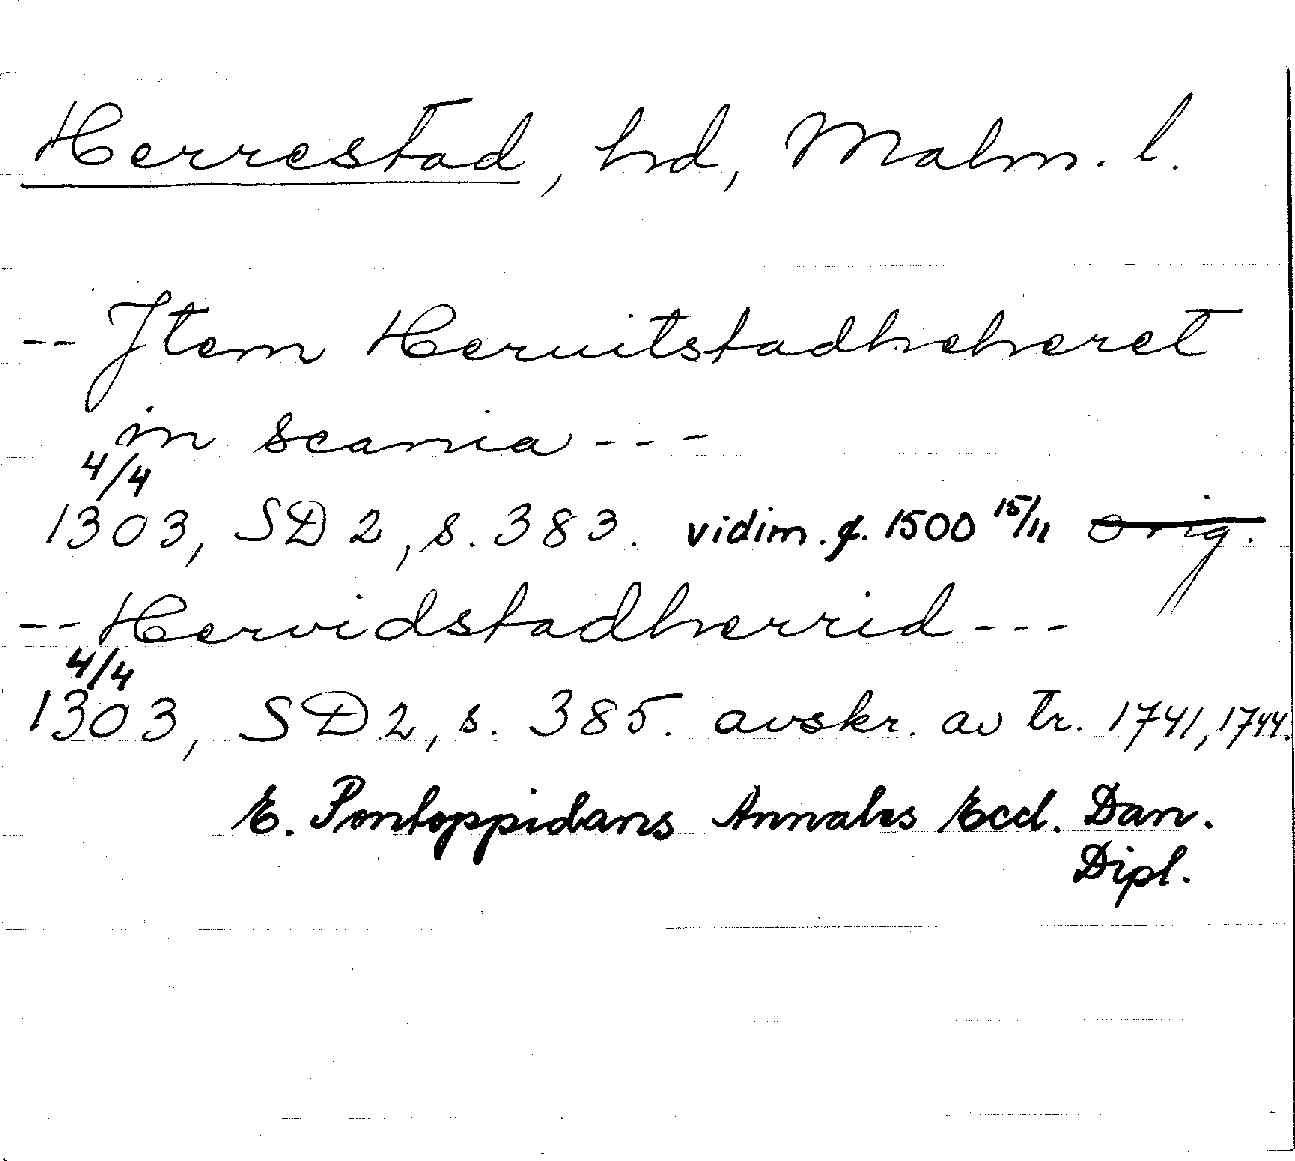 Herrestad, hd, Malm. l.
-- Jtem Heruitstadheheret
in scania ---
4/4
1303, SD 2, s. 383. vidim. f. 1500 15/11 orig.
-- Hervidstadherrid ---
4/4
1303, SD 2, s. 385. avskr. av tr. 1741, 1744.
E. Pontoppidans Annales Eccl. Dan.
Dipl.